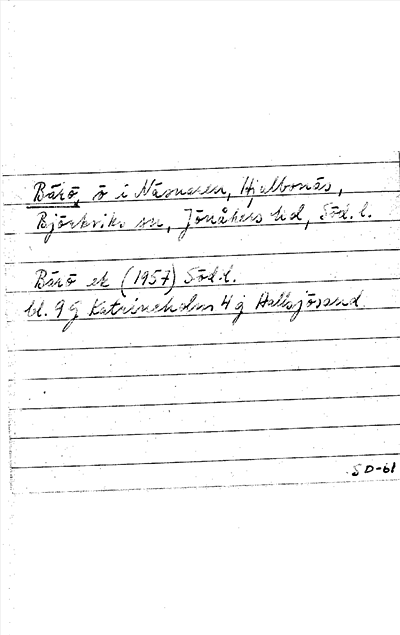 Bärö, ö i Näsnaren, Hjälbonäs,
Björkviks sn, Jönåkers hd, Söd. l.
Bärö ek (1957) Söd. l.
bl. 9 G Katrineholm 4 g Hallsjösand
SD-61